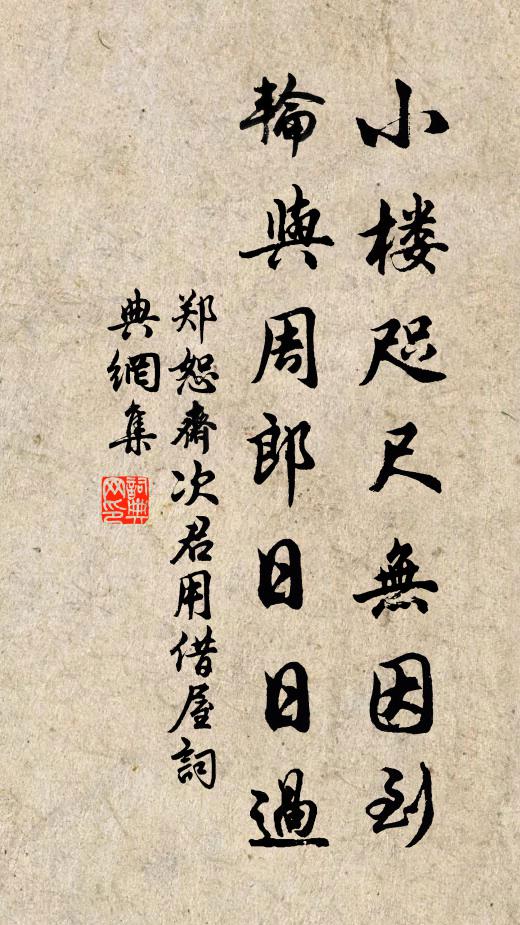 小楼咫尺無因到
輪與周郎日日過
郑恕齋次君用借屋詞
典網集
詞典網印